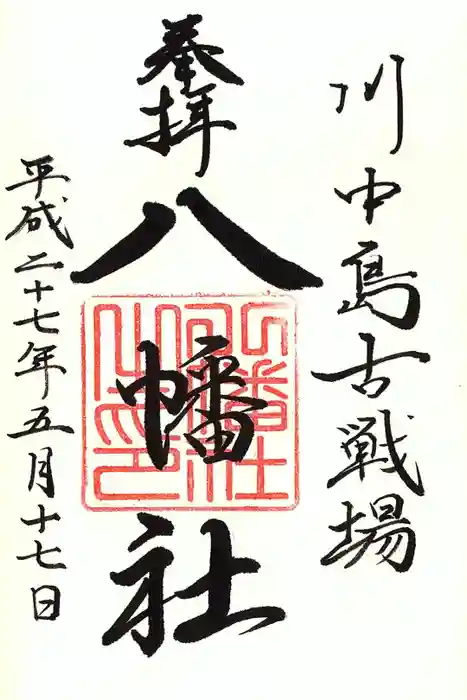 川中島古戦場
奉拝
八幡社
平成二十七年五月十七日